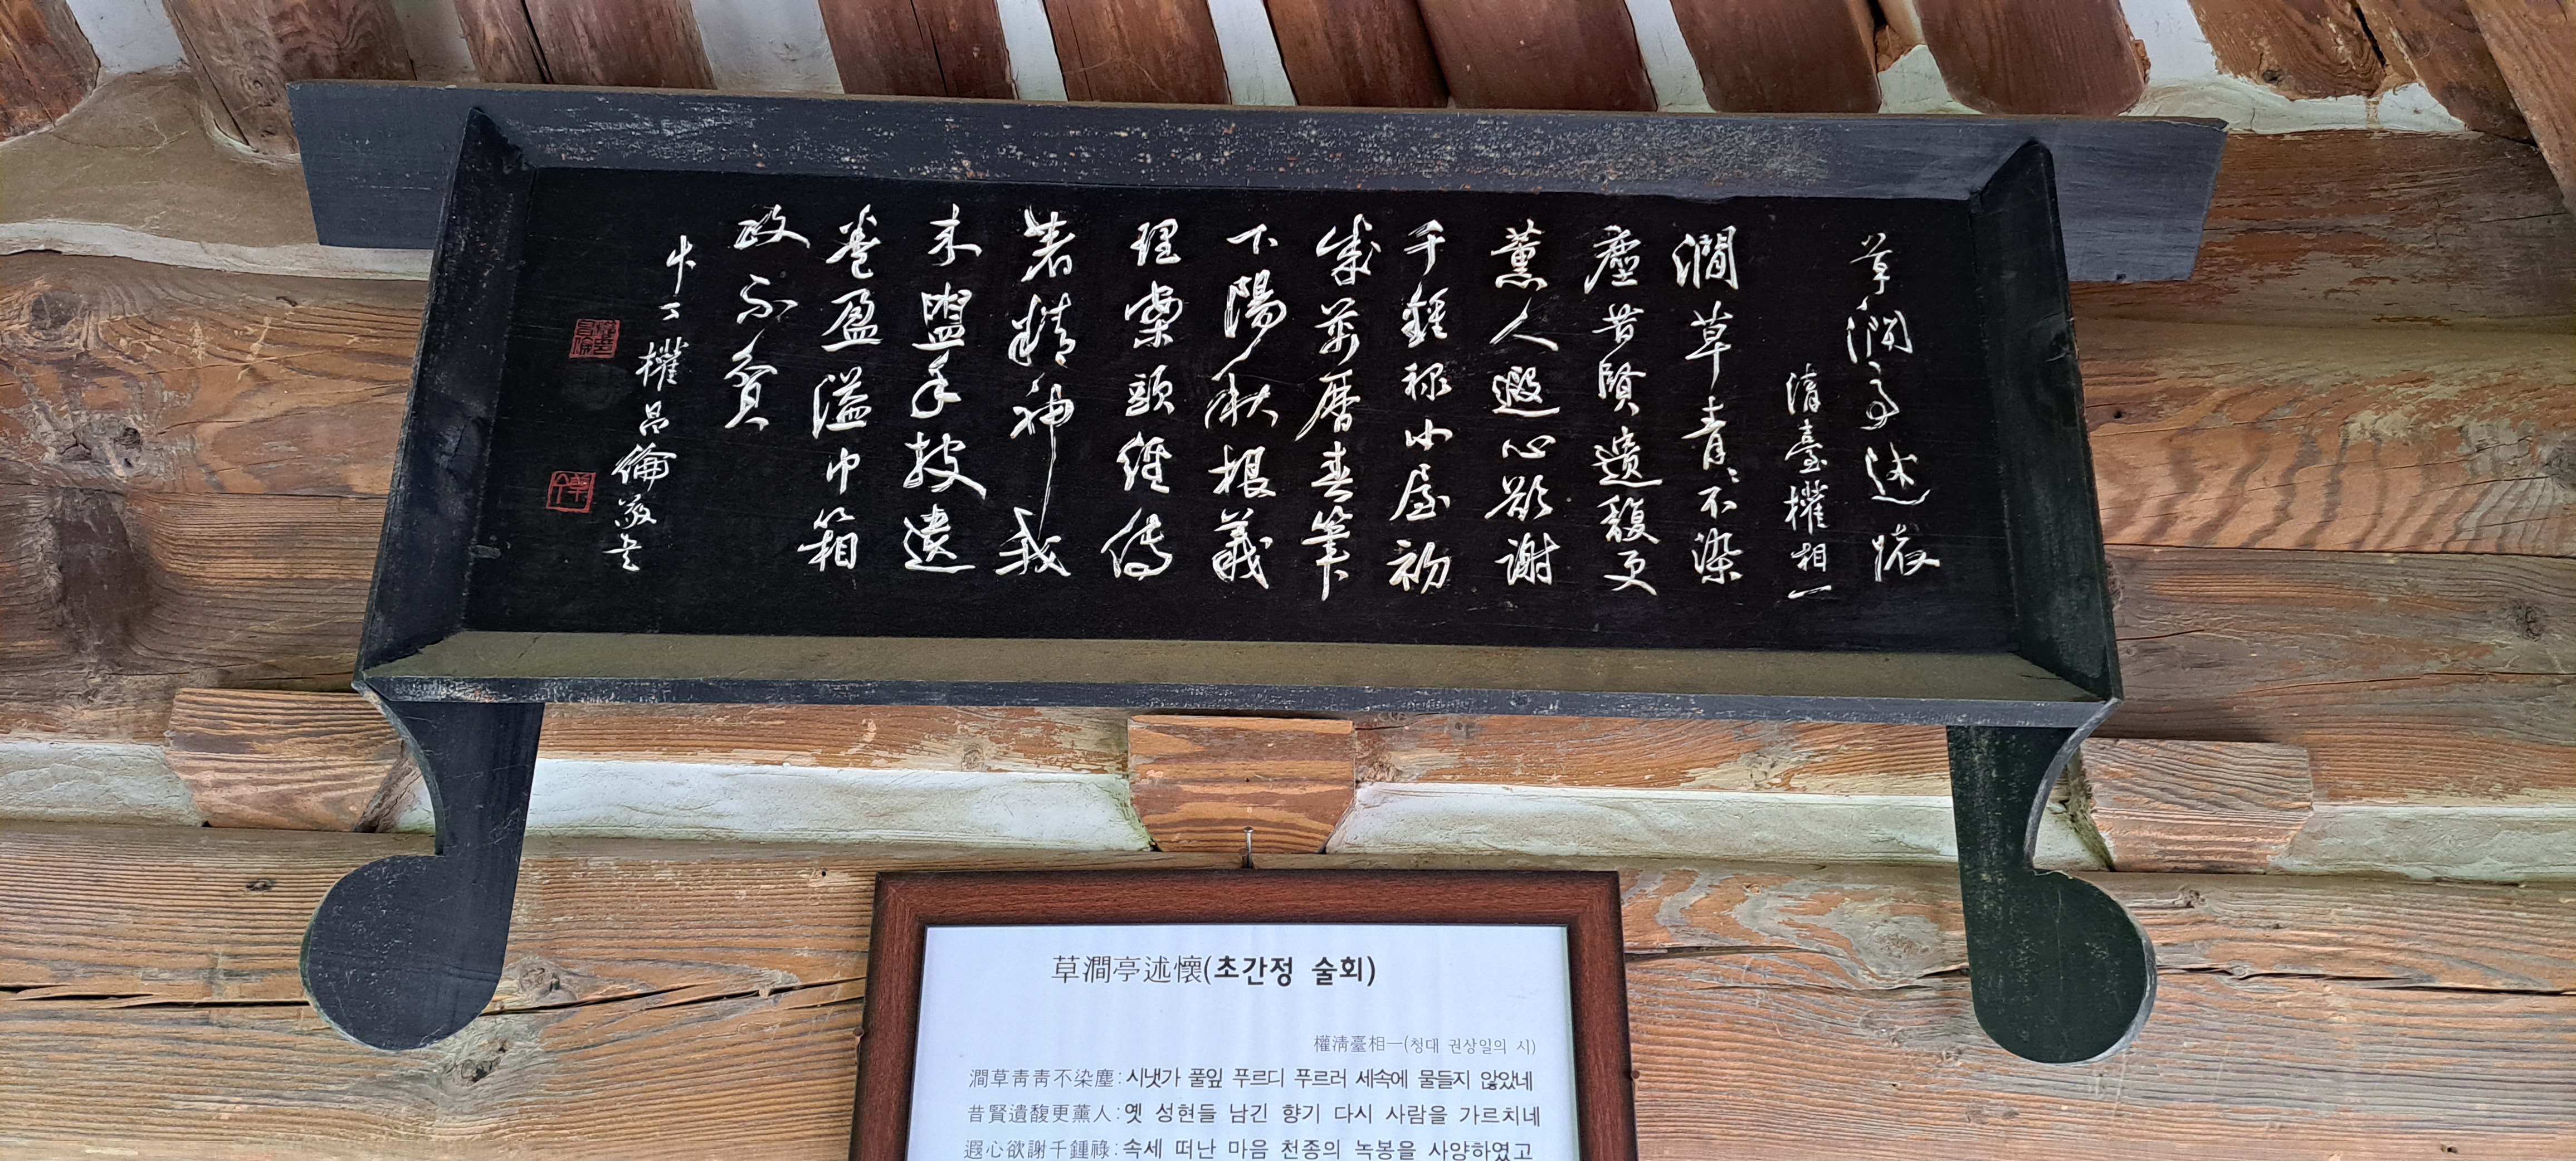 草澗亭述懷
淸臺權相一
澗草青〻不染
塵昔賢遺馥更
薰人遐心欲謝
千鍾祿小屋初
成萬曆春筆
下陽秋根義
理案頭經傳
著精神我
來盥手披遺
卷盈溢巾箱
政不貧
權昌倫敬書
草澗亭述懷(초간정 술회)
權淸臺相一(청대 권상일의 시)
澗草靑靑不染塵:시냇가 풀잎 푸르디 푸르러 세속에 물들지 않았네
昔賢遺馥更薰人:옛 성현들 남긴 향기 다시 사람을 가르치네
遐心欲謝千鍾祿:속세 떠난 마음 천종의 녹봉을 사양하였고